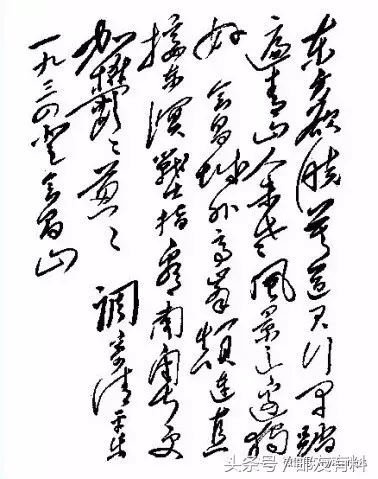 东方欲晓莫道君行早踏
遍青山人未老風景这边独
好 会昌城外高峯顛连直
接东溟戰士指看南粤更
加鬱〻葱〻 調寄清平乐
一九三四登会昌山
头条号 / 邮友有料